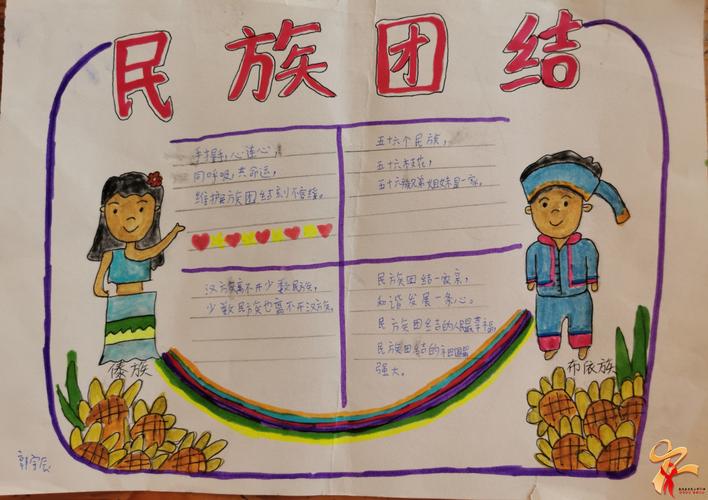 民族团结
手握手,心连心,
同呼吸,共命运,
维护民族团结刻不容缓。
五十六个民族,
五十六枝花,
五十六族兄弟姐妹是一家。
汉族离不开少数民族,
少数民族也离不开汉族。
民族团结一家亲,
和谐发展一条心。
民族团结的人最幸福,
民族团结的祖国最
强大。
傣族
布依族